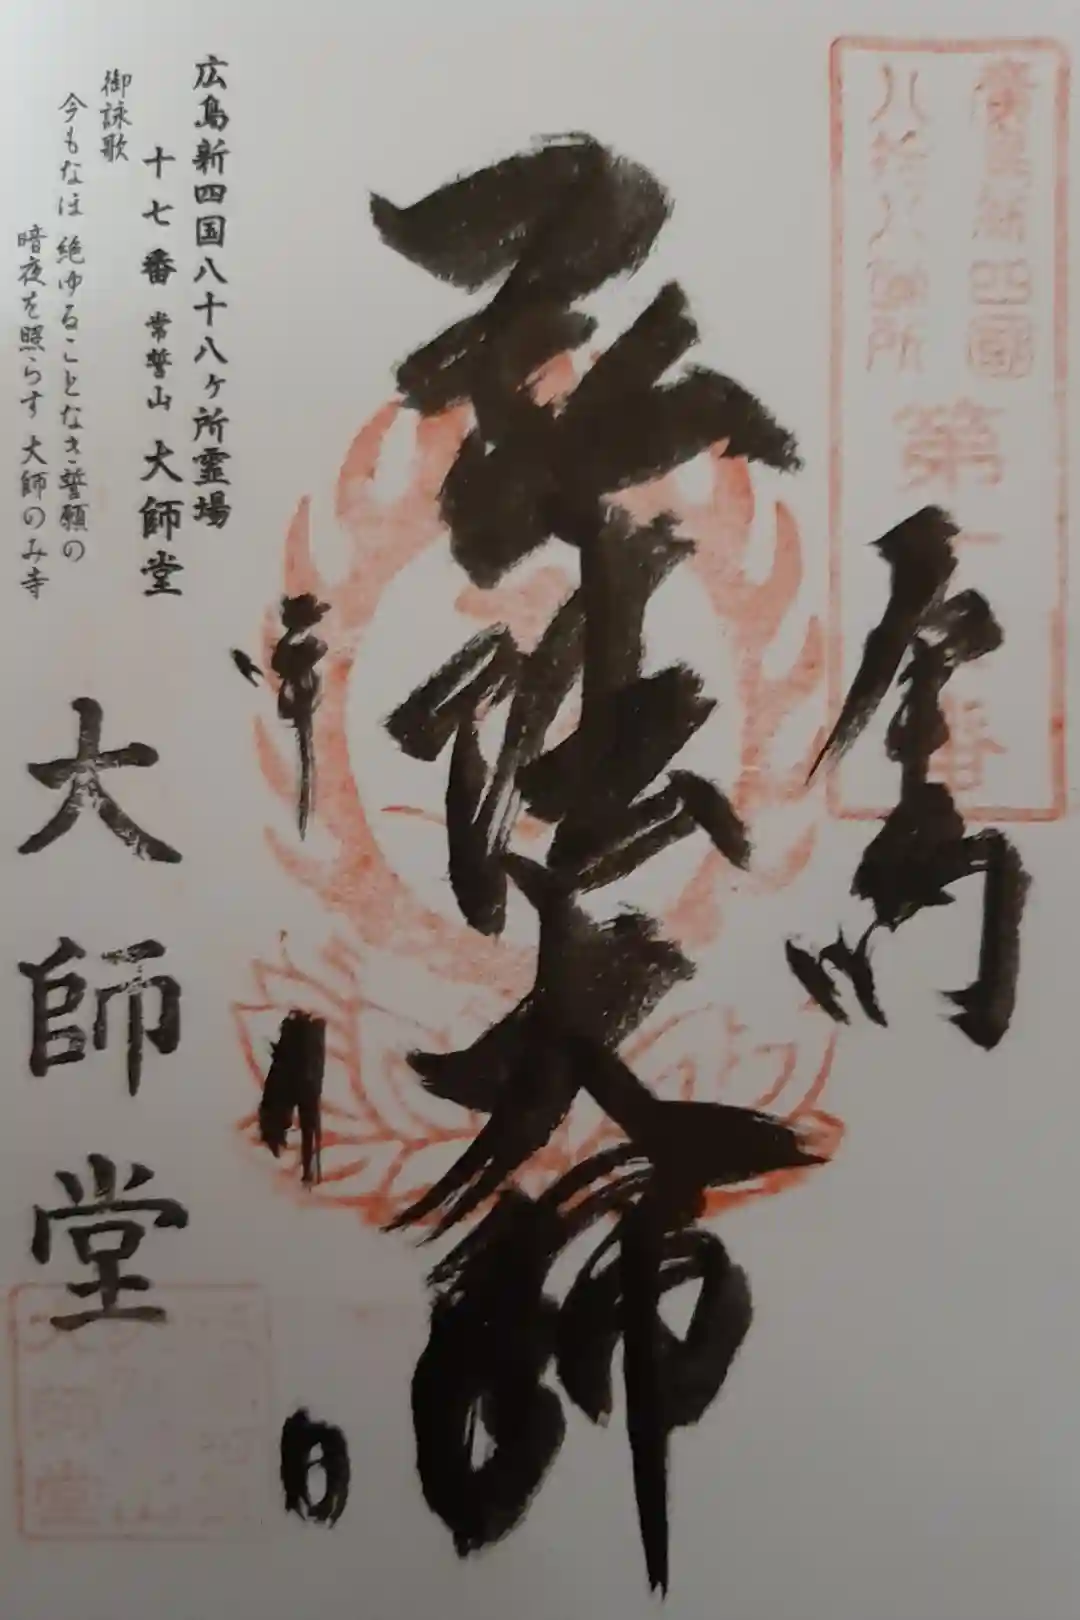 廣島新四國
八拾八箇所
第
番
弘法大師
年
月
日
広島新四国八十八ヶ所霊場
十七番 常誓山 大師堂
御詠歌
今もなほ 絶ゆることなき誓願の
暗夜を照らす 大師のみ寺
大師堂
大師堂